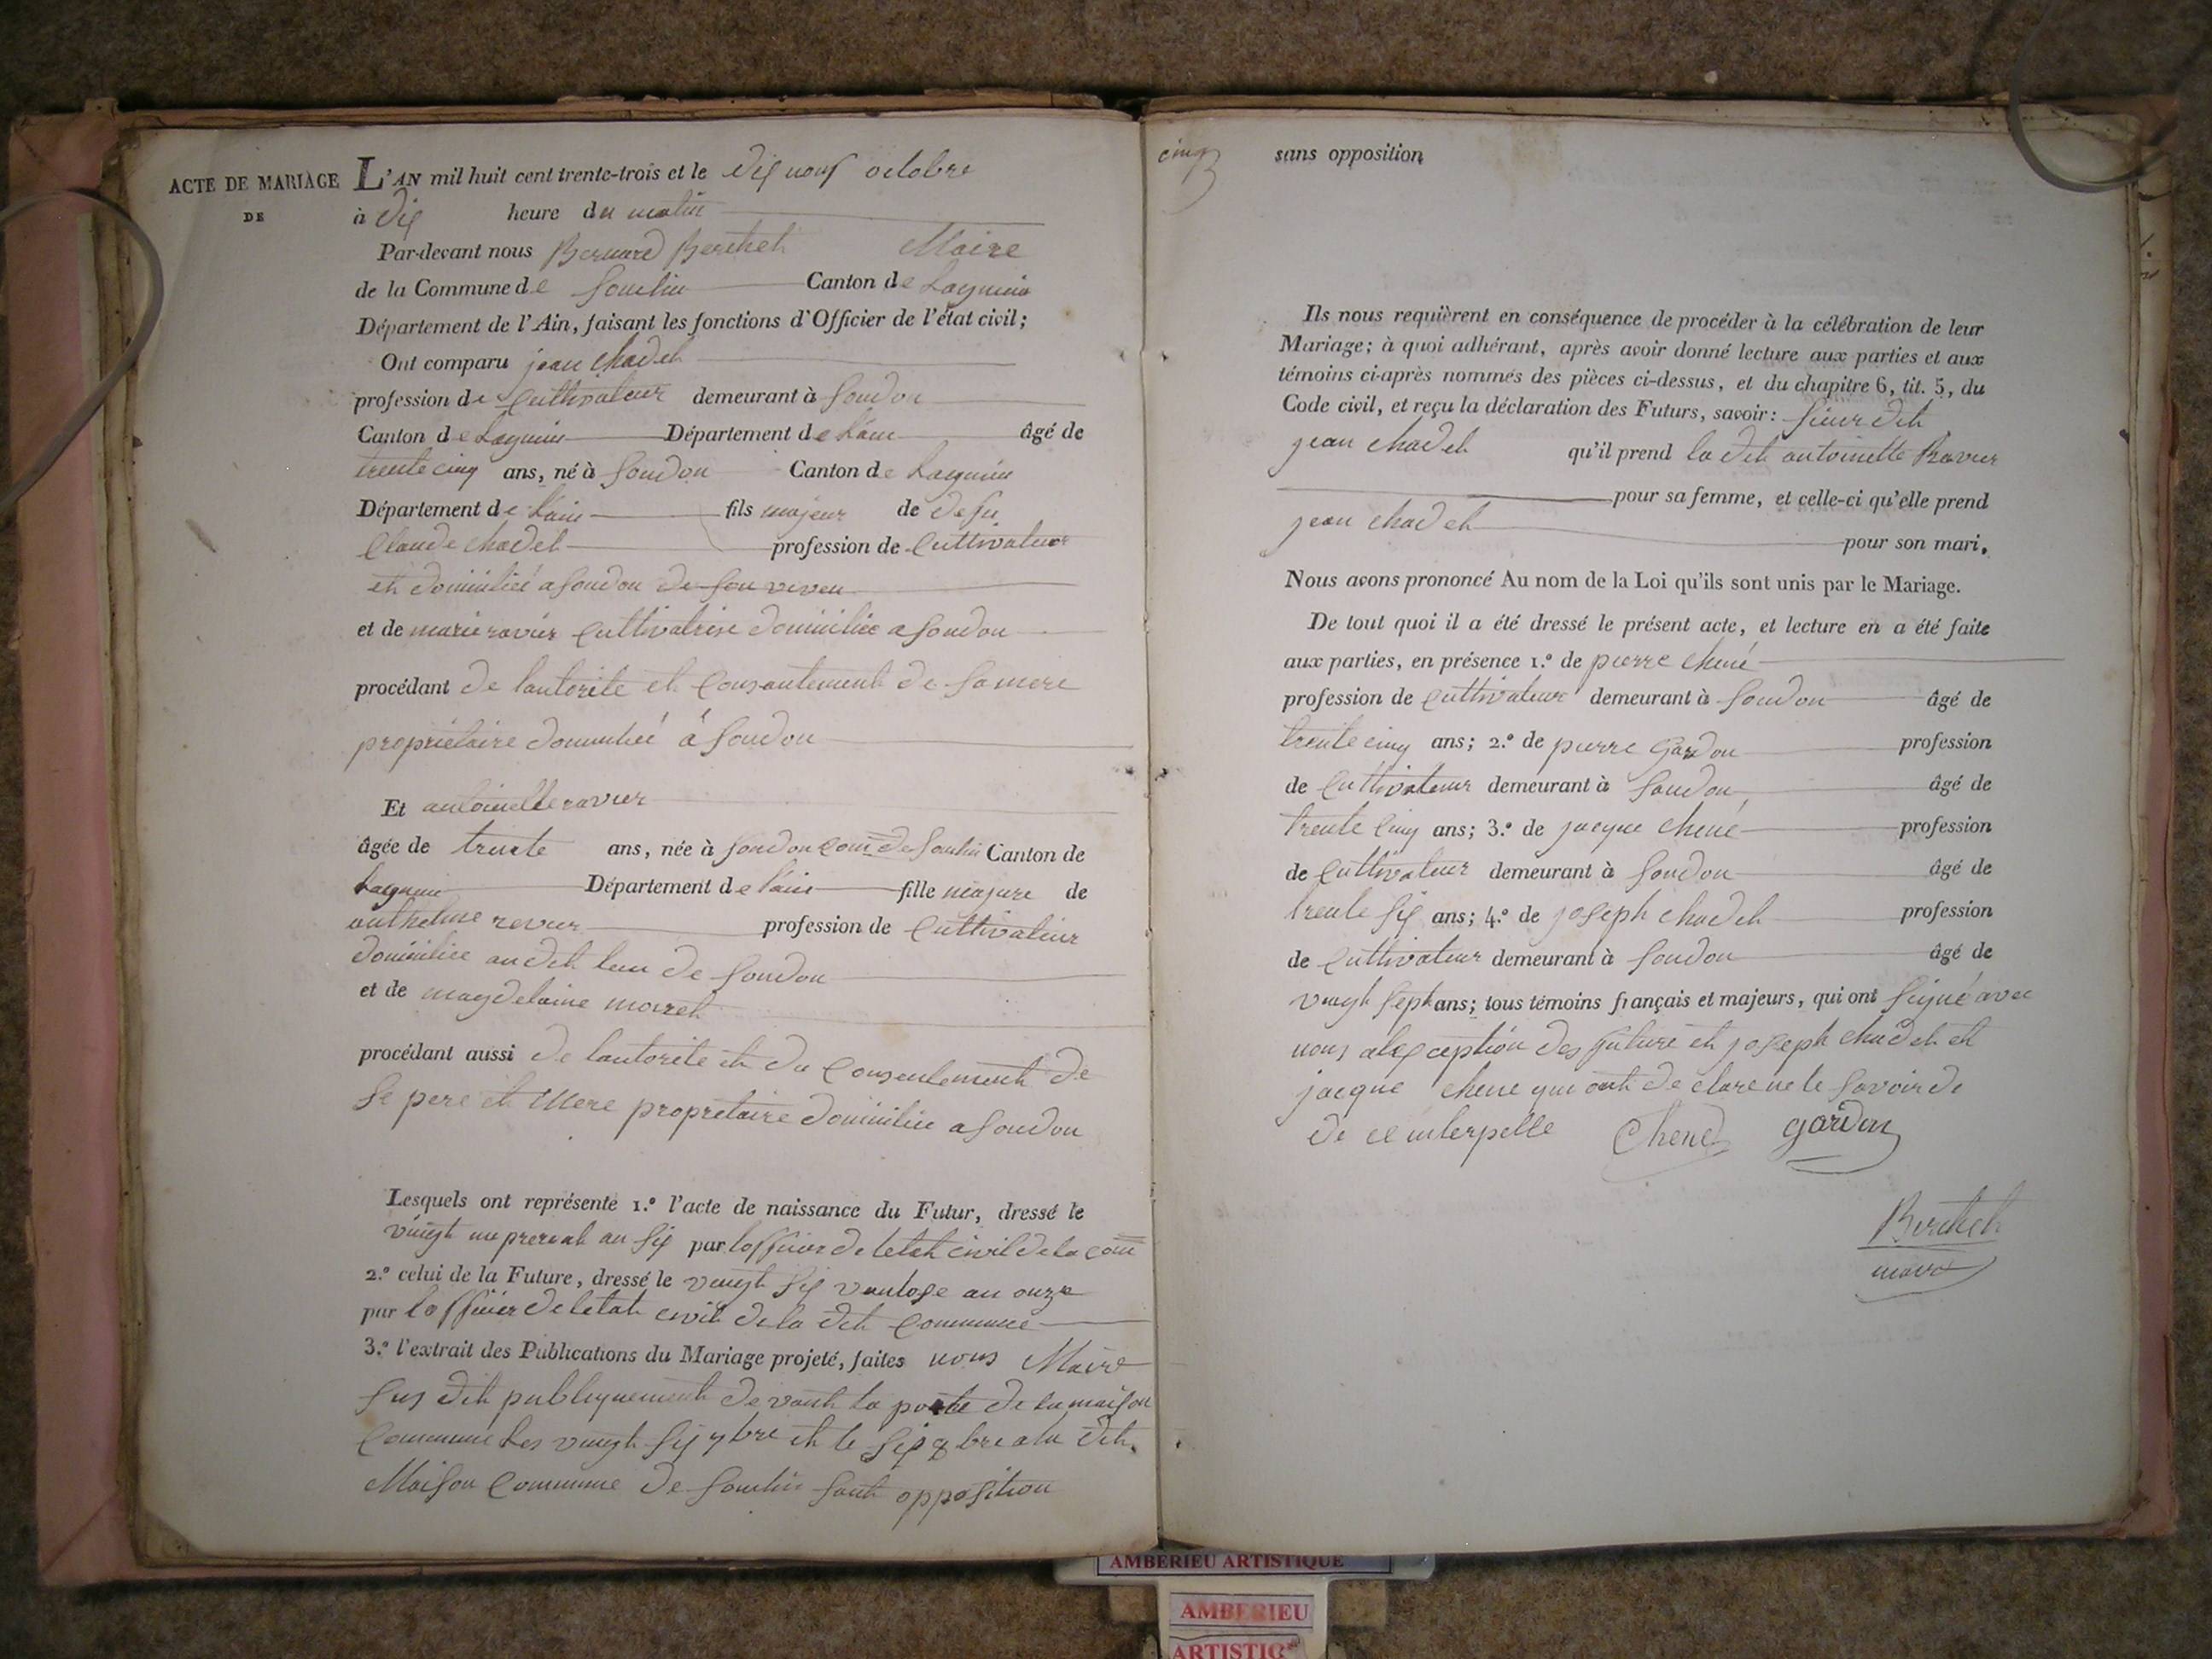 ACTE DE MARIAGE
DE
L'AN mil huit cent trente-trois et le dix nouf octobre
à dix heure du matin
Par-devant nous Bernard Berthet Maire
de la Commune de Souclin Canton de Lagnieu
Département de l'Ain, faisant les fonctions d'Officier de l'état civil;
Ont comparu jean chadel
profession de Cultivateur demeurant à Soudon
Canton de Lagnieu Département de l'ain âgé de
trente cinq ans, né à Soudon Canton de Lagnieu
Département de l'ain fils majeur de defu
Claude chadel profession de Cultivateur
et domicilié a Soudon de son viven
et de marie ravier Cultivatrise domicilié a Soudon
procédant de lautorite et Consantement de sa mere
propriétaire domicilié à Soudon
Et antoinette ravier
âgée de trente ans, née à Soudon com de Souclin Canton de
Lagnieu Département de l'ain fille majure de
anthelme revier profession de Cultivateur
domicilie au dit lieu de Soudon
et de magdelaine morret
procédant aussi de lautorite et du Consentement de
se pere et mere propretaire domicilie a Soudon
Lesquels ont représenté 1.º l'acte de naissance du Futur, dressé le
vingt un prereal an six par lofficier de letat civil de la com
2.º celui de la Future, dressé le vingt six vantose an onze
par lofficier de letat civil de la dit Commune
3.º l'extrait des Publications du Mariage projeté, faites nous Maire
sus dit publiquement devant la porte de la maison
Commune Les vingt six 7bre et le six 8bre a la dit
Maison Commune de Souclin sant opposition
cinq
sans opposition
Ils nous requièrent en conséquence de procéder à la célébration de leur
Mariage; à quoi adhérant, après avoir donné lecture aux parties et aux
témoins ci-après nommés des pièces ci-dessus, et du chapitre 6, tit. 5, du
Code civil, et reçu la déclaration des Futurs, savoir: sieur dit
jean chadel qu'il prend la dit antoinette Ravier
pour sa femme, et celle-ci qu'elle prend
jean chadel pour son mari.
Nous avons prononcé Au nom de la Loi qu'ils sont unis par le Mariage.
De tout quoi il a été dressé le présent acte, et lecture en a été faite
aux parties, en présence 1.º de pierre chené
profession de Cultivateur demeurant à Soudon âgé de
trente cinq ans; 2.º de pierre Gardon profession
de Cultivateur demeurant à Soudon âgé de
trente Cinq ans; 3.º de jacque chene profession
de Cultivateur demeurant à Soudon âgé de
trente six ans; 4.º de joseph chadel profession
de Cultivateur demeurant à Soudon âgé de
vingt sept ans; tous témoins français et majeurs, qui ont signé avec
nous alexception des future et joseph chadel et
jacque chene qui ont de clare ne le savoir de
de ce interpelle Chene gardon
Berthet
maire
AMBERIEU ARTISTIQUE
AMBERIEU
ARTISTIQ